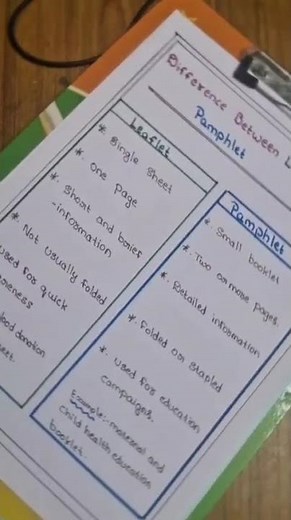 Difference Between L
Pamphlet
Leaflet
* Single sheet
* One page
* Short and brief
- information
* Not usually folded
used for quick
blood donation
Pamphlet
* Small booklet
* Two or more pages.
* Detailed information
* Folded or stapled
* Used for education
campaigns.
Example:- maternal and
child health education
booklet.